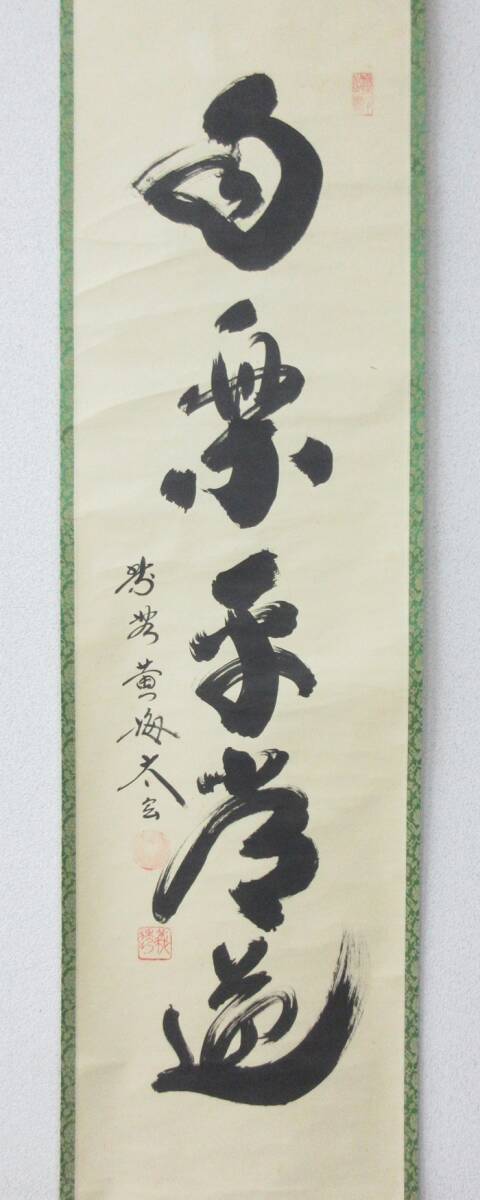 自楽平常道
紫野黄梅太玄